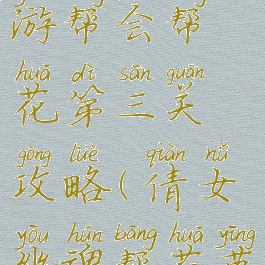 游帮会帮
huā dì sān guān
花第三关
gōng lüè qiàn nǚ
攻略(倩女
yōu hún bāng huā yīng
幽魂帮花英